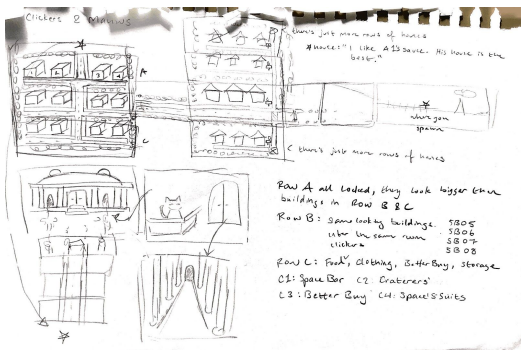 Clickers 2
there's just more rows of houses
*House: "I like A1 Sauce. His house is the best."
A
C
where you spawn
C there's just more rows of houses
Row A all locked, they look bigger then buildings in Row B & C
Row B: Same looking buildings. 5B05
enter the same room 5B06
clickers 5B07
5B08
Row C: Food, Clothing, Better Buy, Storage
C1: Space Bar C2: Craterers
C3: Better Buy C4: Space's Suits